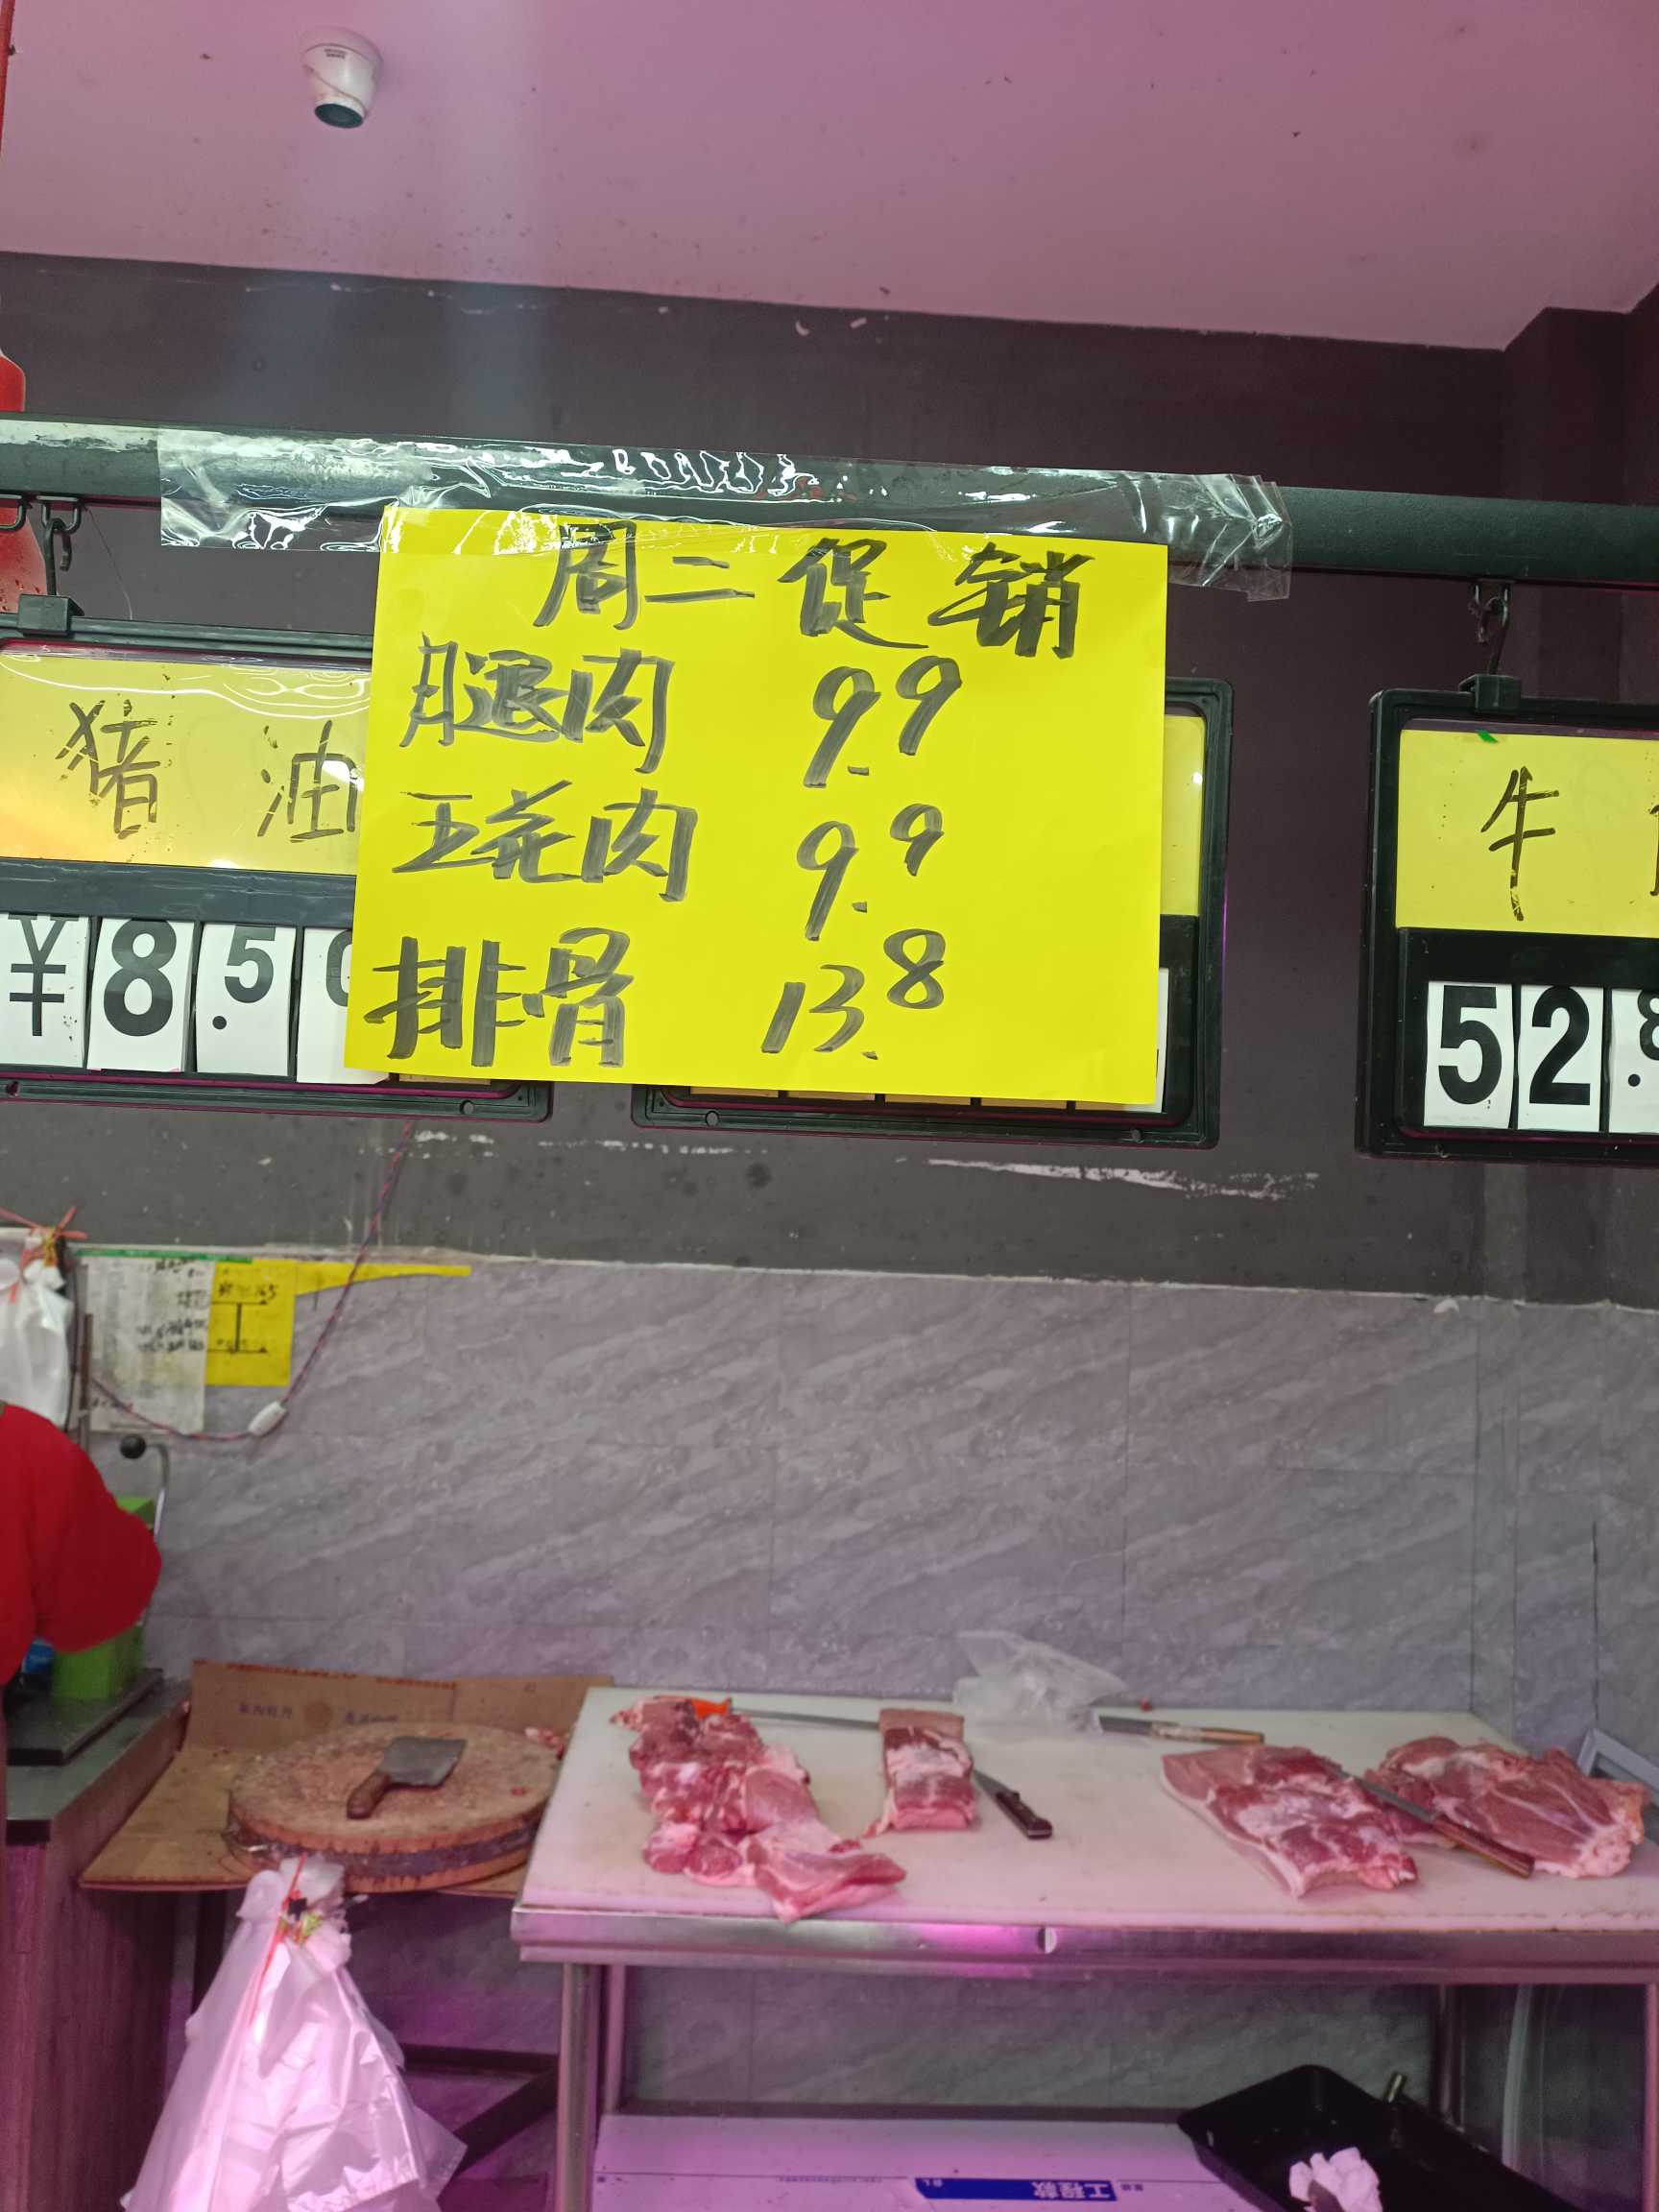 周二促销
腿肉 9.9
五花肉 9.9
排骨 13.8
猪油
¥8.50
牛
52.8
工程款